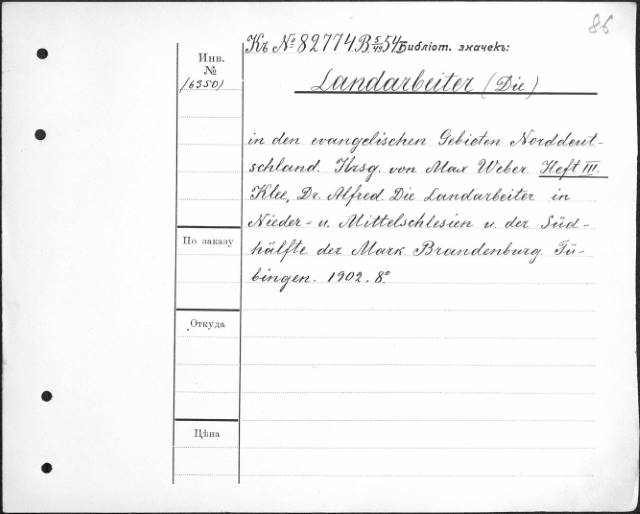 86
Къ № 82774 B 5/49 54 Библіот. значекъ:
Инв.
№
16350)
Landarbeiter (Die)
in den evangelischen Gebieten Norddeut-
schland. Hrsg. von Max Weber. Heft III.
Klee, Dr. Alfred. Die Landarbeiter in
Nieder- u. Mittelschlesien u. der Süd-
hälfte der Mark Brandenburg. Tü-
bingen. 1902. 8°
По заказу
Откуда
Цѣна